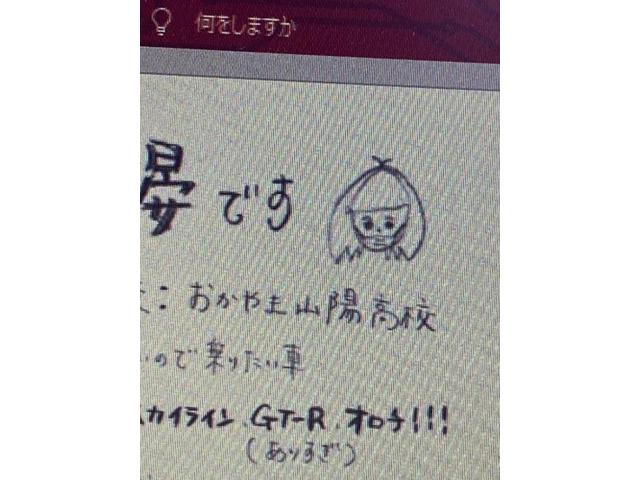 何をしますか
晏です
：おかやま山陽高校
ので乗りたい車
スカイライン、GT-R、オロチ!!!
(ありすぎ)